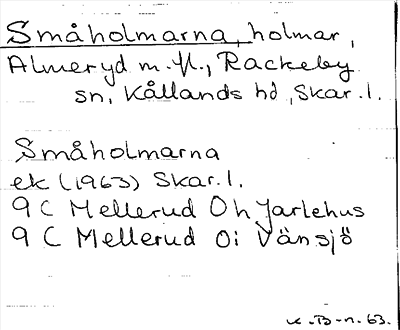 Småholmarna, holmar,
Almeryd m.fl., Rackeby
sn, Kållands hd, Skar.l.
Småholmarna
ek (1963) Skar.l.
9 C Mellerud Oh Jarlehus
9 C Mellerud Oi Vänsjö
K.B-n.63.